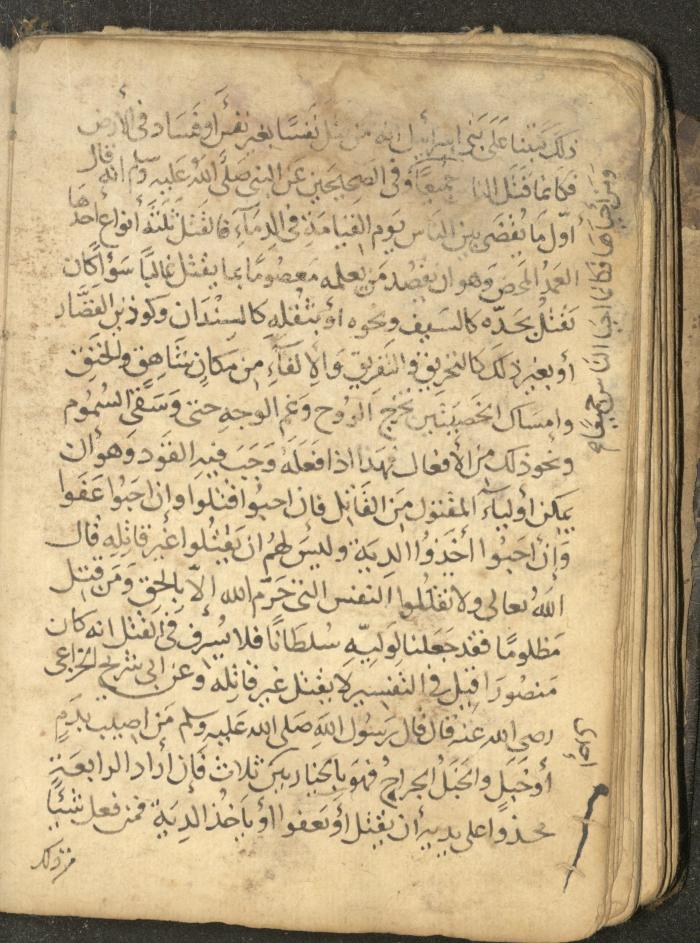 ذلك كتبنا على بنى اسرائيل انه من قتل نفسا بغير نفس أو فساد فى الأرض
فكانما قتل الناس جميعا وفى الصحيحين عن النبى صلى الله عليه وسلم انه قال
أول ما يقضى بين الناس يوم القيامة فى الدماء فالقتل ثلثة أنواع أحدها
العمد المحض وهو ان يقصد من يعلمه معصوما بما يقتل غالبا سوآ كان
يقتل بحدّه كالسيف ونحوه أو بثقله كالسندان وكوذين القصّار
أو بغير ذلك كالتحريق والتغريق والالقآء من مكان شاهق والخنق
وامساك الخصيتين حتى تخرج الروح وغم الوجه حتى وسقى السموم
ونحو ذلك من الأفعال فهذا اذا فعله وجب فيه القود وهو ان
يمكن أوليآء المقتول من القاتل فان احبوا قتلوا وان احبوا عفوا
وإن أحبوا أخذوا الدية وليس لهم ان يقتلوا غير قاتله قال
الله تعالى ولا تقتلوا النفس التى حرّم الله إلا بالحق ومن قتل
مظلوما فقد جعلنا لوليه سلطانا فلا يسرف فى القتل انه كان
منصورا قيل فى التفسير لا يقتل غير قاتله وعن ابى شريح الخزاعى
رضى الله عنه قال قال رسول الله صلى الله عليه وسلم من اصيب بدم
أو خبل والخبل الجراح فهو بالخيار بين ثلاث فإن أراد الرابعة
فخذوا على يديه أن يقتل أو يعفوا أو يأخذ الدية فمن فعل شيئا
من ذلك
ومن أحياها فكانما احيا الناس جميعا